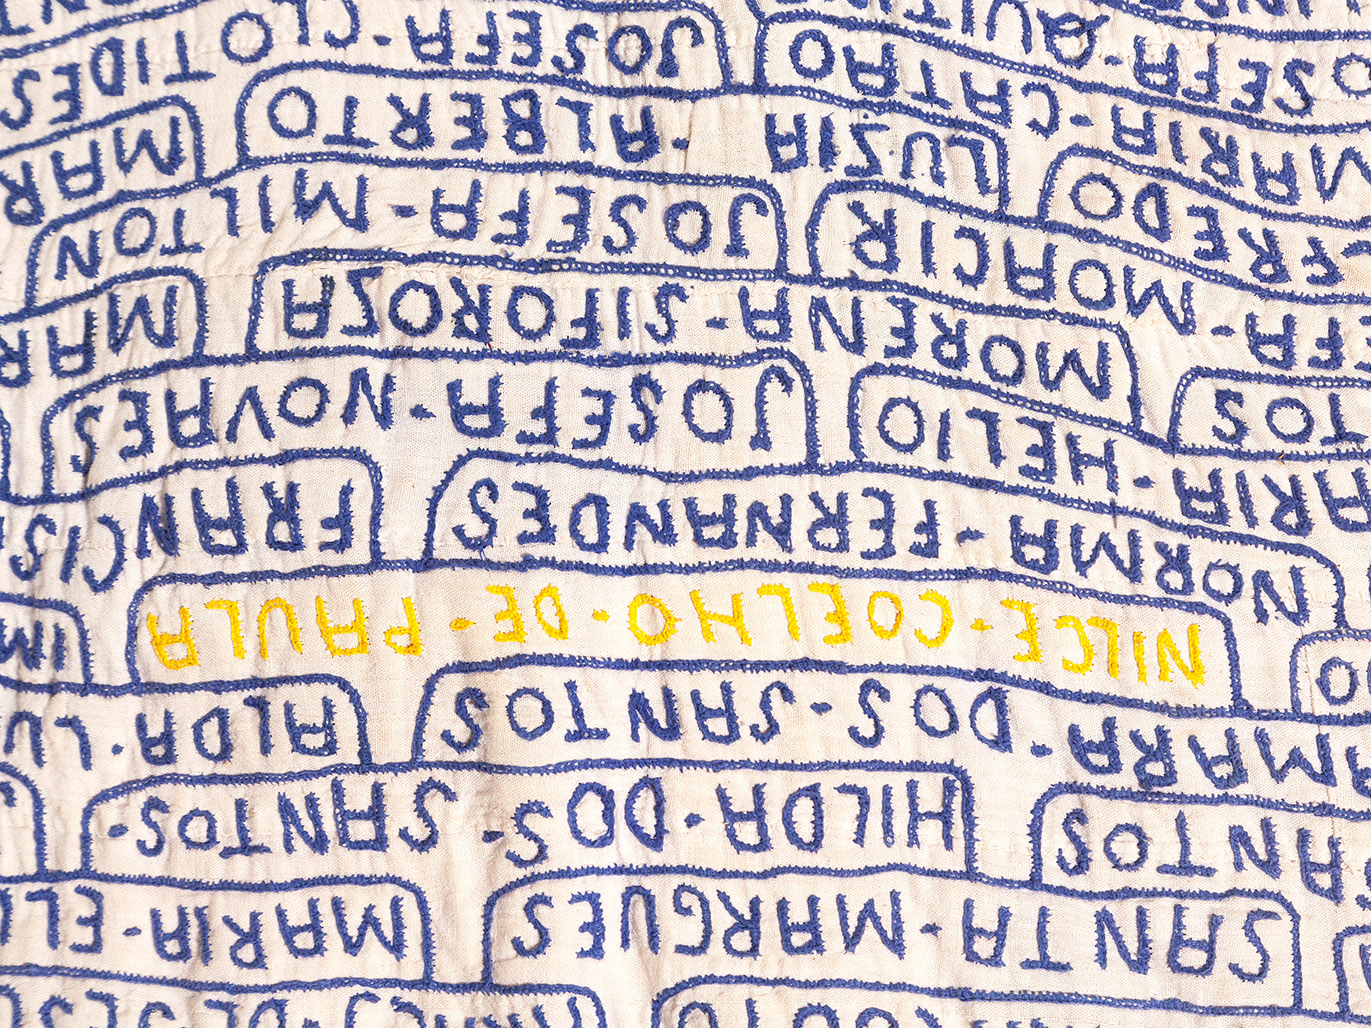 SANTA - MARGUES MARIA - EL
ANTOS HILDA - DO - S - SANTOS -
AMARA - DOS - SANTOS ALDA - LU
O NILCE - COELHO - DE - PAULA IM
NORMA - FERNANDES FRANCIS
ARIA - HELIO JOSEFA - NOVAES
TOS MORENA - SIFOROZA MAR
FA - MOACIR JOSEFA - MILTON
FREDO LUZIA - ALBERTO MAR
MARIA - CATAO JOSEFA - CLOTIDES
OSEFA - QUITI